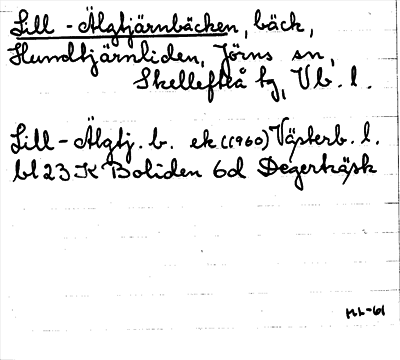 Lill-Älgtjärnbäcken, bäck,
Hundtjärnliden, Jörns sn,
Skellefteå tg, Vb. l.
Lill-Älgtj. b. ek (1960) Västerb. l.
bl 23 K Boliden 6d Degerträsk
HL-61